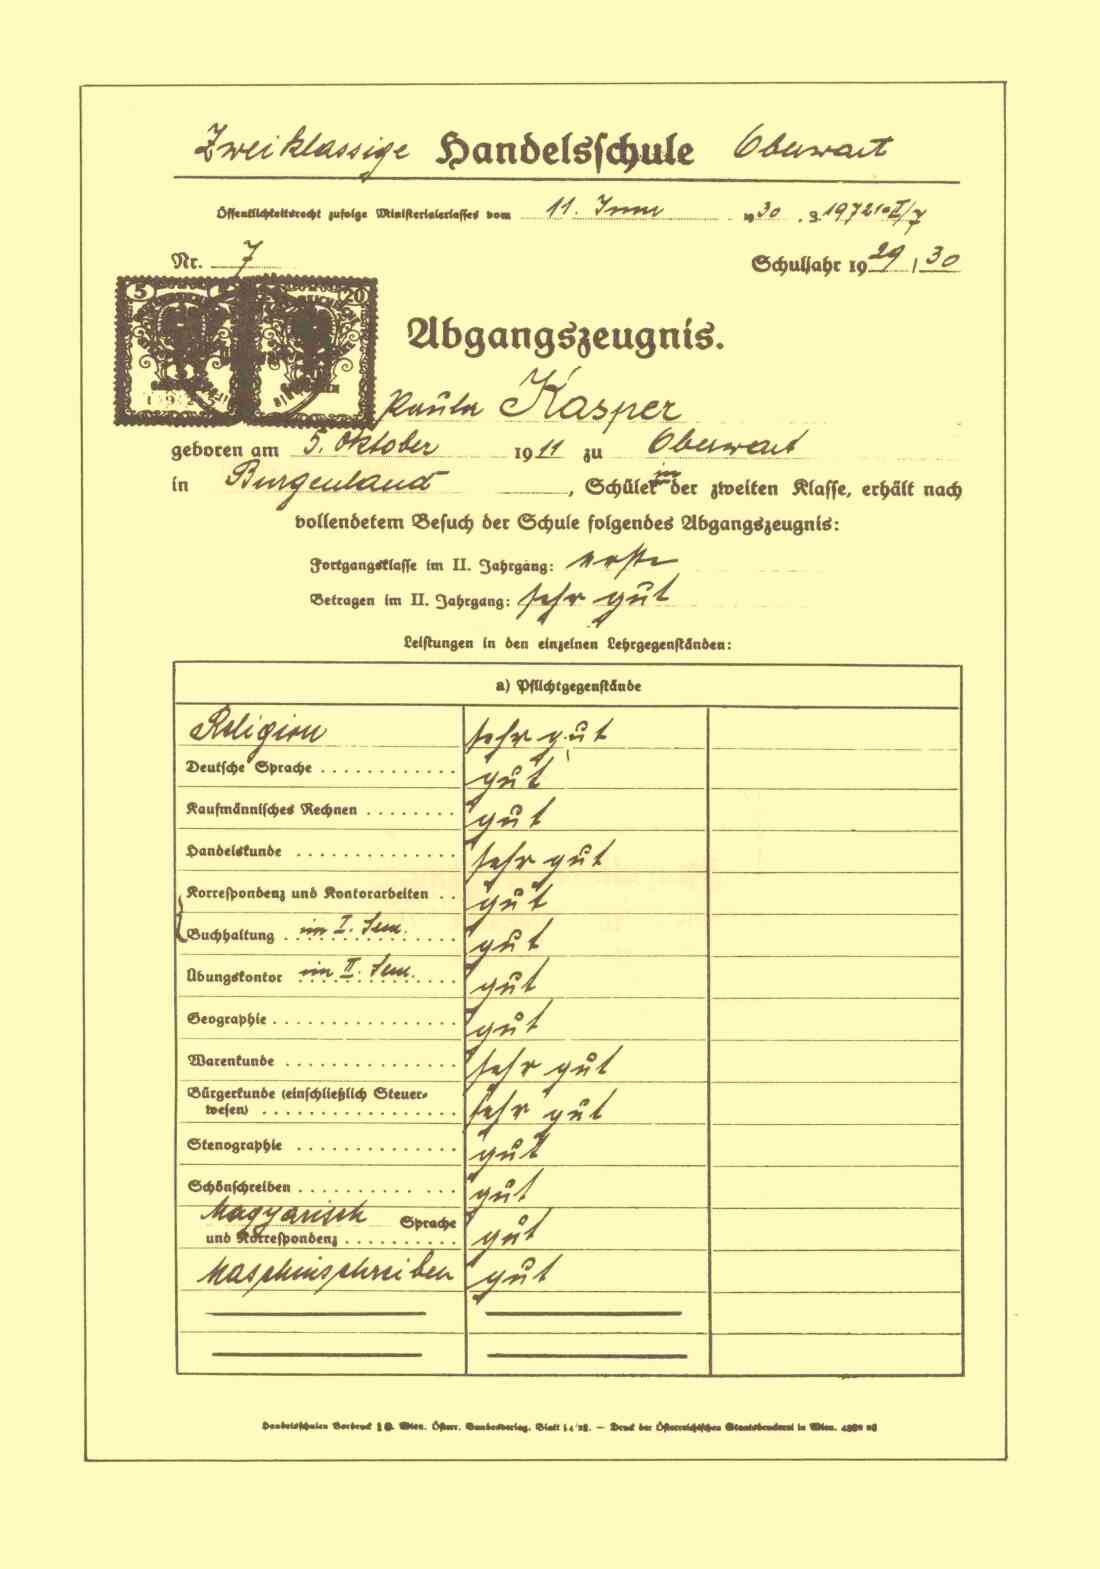 Zweiklassige Handelsschule Oberwart
Öffentlichkeitsrecht zufolge Ministerialerlasses vom 11. Juni 1930, Z. 19721-II/7
Nr. 7
Schuljahr 1929/30
5 20
Abgangszeugnis.
Paula Kasper
geboren am 5. Oktober 1911 zu Oberwart
in Burgenland, Schülerin der zweiten Klasse, erhält nach
vollendetem Besuch der Schule folgendes Abgangszeugnis:
Fortgangsklasse im II. Jahrgang: erste
Betragen im II. Jahrgang: sehr gut
Leistungen in den einzelnen Lehrgegenständen:
a) Pflichtgegenstände
Religion sehr gut
Deutsche Sprache gut
Kaufmännisches Rechnen gut
Handelskunde sehr gut
Korrespondenz und Kontorarbeiten gut
Buchhaltung im I. Sem. gut
Übungskontor im II. Sem. gut
Geographie gut
Warenkunde sehr gut
Bürgerkunde (einschließlich Steuer-
wesen) sehr gut
Stenographie gut
Schönschreiben gut
Magyarisch Sprache
und Korrespondenz gut
Maschinschreiben gut
Handelsschulen Vordruck Wien. Österr. Bundesverlag. Blatt — Druck der Österreichischen Staatsdruckerei in Wien.